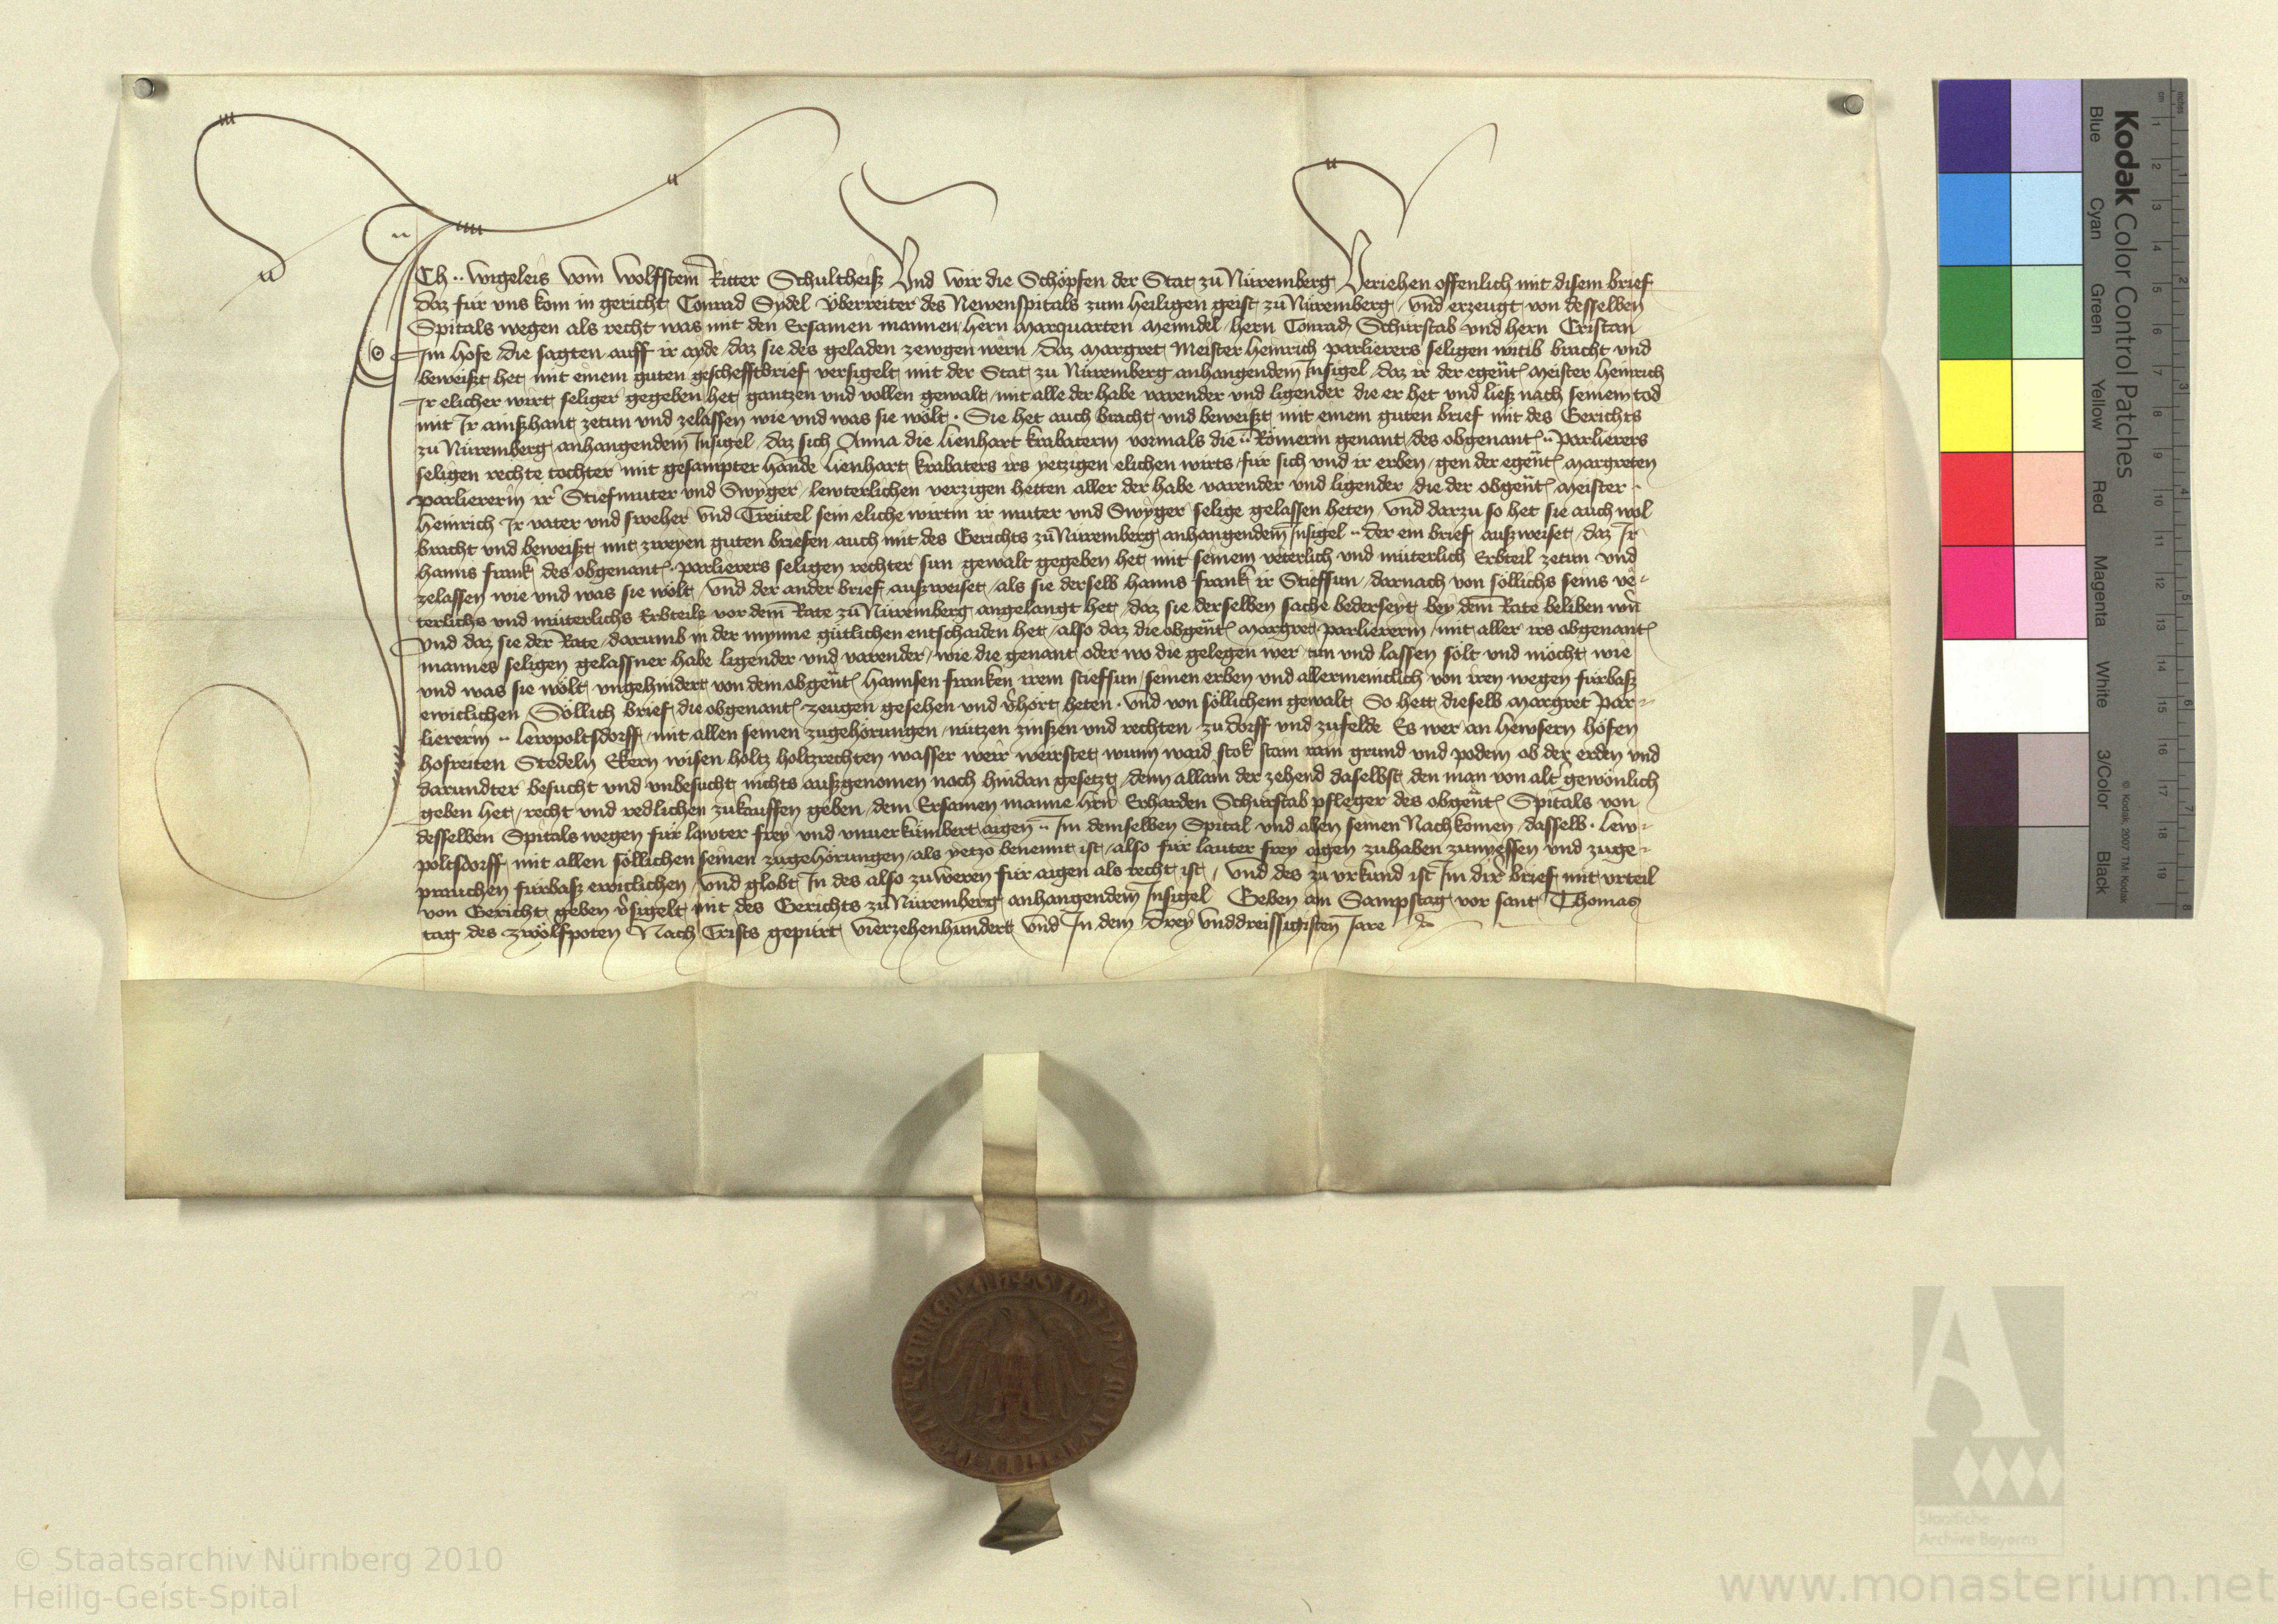 ICh ·· wigeleis vom wolfstein Ritter Schultheiß Vnd wir die Schöpfen der Stat zů Nüremberg Veriehen offenlich mit disem brief
daz für vns kom in gericht Conrad Sydel Überreiter des Newenspitals zum heiligen geist zů Nüremberg vnd erzeugt von desselben
Spitals wegen als recht was mit den Ersamen mannen hern Marquarten Menndel hern Conrad Schürstab vnd hern Cristan
Im hofe die sagten auff ir ayde daz sie des geladen zewgen wern daz Margret Meister heinrich parlierers seligen witib bracht vnd
beweißt het mit einem guten geschefftbrief versigelt mit der Stat zu Nüremberg anhangendem Insigel daz ir der egen̄t Meister heinrich
Ir elicher wirt seliger gegeben het gantzen vnd vollen gewalt mit alle der habe varender vnd ligender die er het vnd ließ nach seinem tod
mit Ir ainßhant zetun vnd zelassen wie vnd was sie wölt · Sie het auch bracht vnd beweißt mit einem guten brief mit des Gerichts
zu Nüremberg anhangendem Insigel daz sich Anna die lienhart krabaterin vormals die ·· Römerin genant des obgenant ·· parlierers
seligen rechte tochter mit gesampter hande lienhart krabaters irs yetzigen elichen wirts für sich vnd ir erben gen der egen̄t Margreten
parliererin irr Stiefmuter vnd Swyger lewterlichen verzigen hetten aller der habe varender vnd ligender die der obgen̄t Meister ··
heinrich Ir vater vnd sweher vnd Treütel sein eliche wirtin ir muter vnd Swyger selige gelassen heten vnd darzu so het sie auch wol
bracht vnd beweißt mit zweyen guten briefen auch mit des Gerichts zů Nüremberg anhangendem Insigel ·· der ein brief außweiset daz Ir
hanns frank des obgenant parlierers seligen rechter sun gewalt gegeben het mit seinem veterlich vnd müterlich Erbteil zetun vnd
zelassen wie vnd was sie wölt vnd der ander brief außweiset als sie derselb hanns frank ir Stieffsun darnach von söllichs seins ve-
terlichs vnd müterlichs Erbteils vor dem Rate zů Nüremberg angelangt het daz sie derselben sache bederseyt bey dem Rate beliben wern
vnd daz sie der Rate darumb in der mynne gütlichen entschaiden het also daz die obgen̄t Margret parliererin mit aller irs obgenant
mannes seligen gelassner habe ligender vnd varender wie die genant oder wo die gelegen wer tun vnd lassen solt vnd möcht wie
vnd was sie wölt vngehindert von dem obgen̄t hannsen franken irem stiefsun seinen erben vnd allermeniclich von iren wegen fürbaß
ewiclichen Söllich brief die obgenant zeugen gesehen vnd v̓hört heten · vnd von söllichem gewalt So hett dieselb Margret Par-
liererin ·· lewpoltsdorff mit allen seinen zugehörungen nützen zinßen vnd rechten zu dorff vnd zufelde Es wer an hewsern höfen
hofreiten Stedeln Ekern wisen holtz holtzrechten wasser werr werrstet wunn waid stok stain rain grund vnd podem ob der erden vnd
darundter besucht vnd vnbesucht nichts außgenomen noch hindan gesetzt denn allain der zehend daselbst den man von alt̓ gewönlich
geben het recht vnd redlichen zukauffen geben dem Ersamen manne hern Erharden Schürstab pfleger des obgen̄t Spitals von
desselben Spitals wegen für lawter frey vnd vnuerkümbert aigen ·· Im demselben Spital vnd allen seinen Nachkomen dasselb · lew-
poltsdorff mit allen söllichen seinen zugehörungen als yetzo benennt ist also für lauter frey aigen zuhaben zunyessen vnd zuge-
prauchen fürbaß ewiclichen vnd globt In des also zu weren für aigen als recht ist vnd des zu vrkund ist Im dir̓ brief mit vrteil
von Gericht geben v̓sigelt mit des Gerichts zů Nüremberg anhangendem Insigel Geben am Sampstag vor sant Thomas
tag des zwölfpoten Nach Crists gepürt vierzehenhundert vnd In dem Drey vnddreissigisten Jare
Kodak Color Control Patches
Blue Cyan Green Yellow Red Magenta White 3/Color Black
© Kodak, 2007 TM: Kodak
Staatliche
Archive Bayerns
© Staatsarchiv Nürnberg 2010
Heilig-Geist-Spital
www.monasterium.net